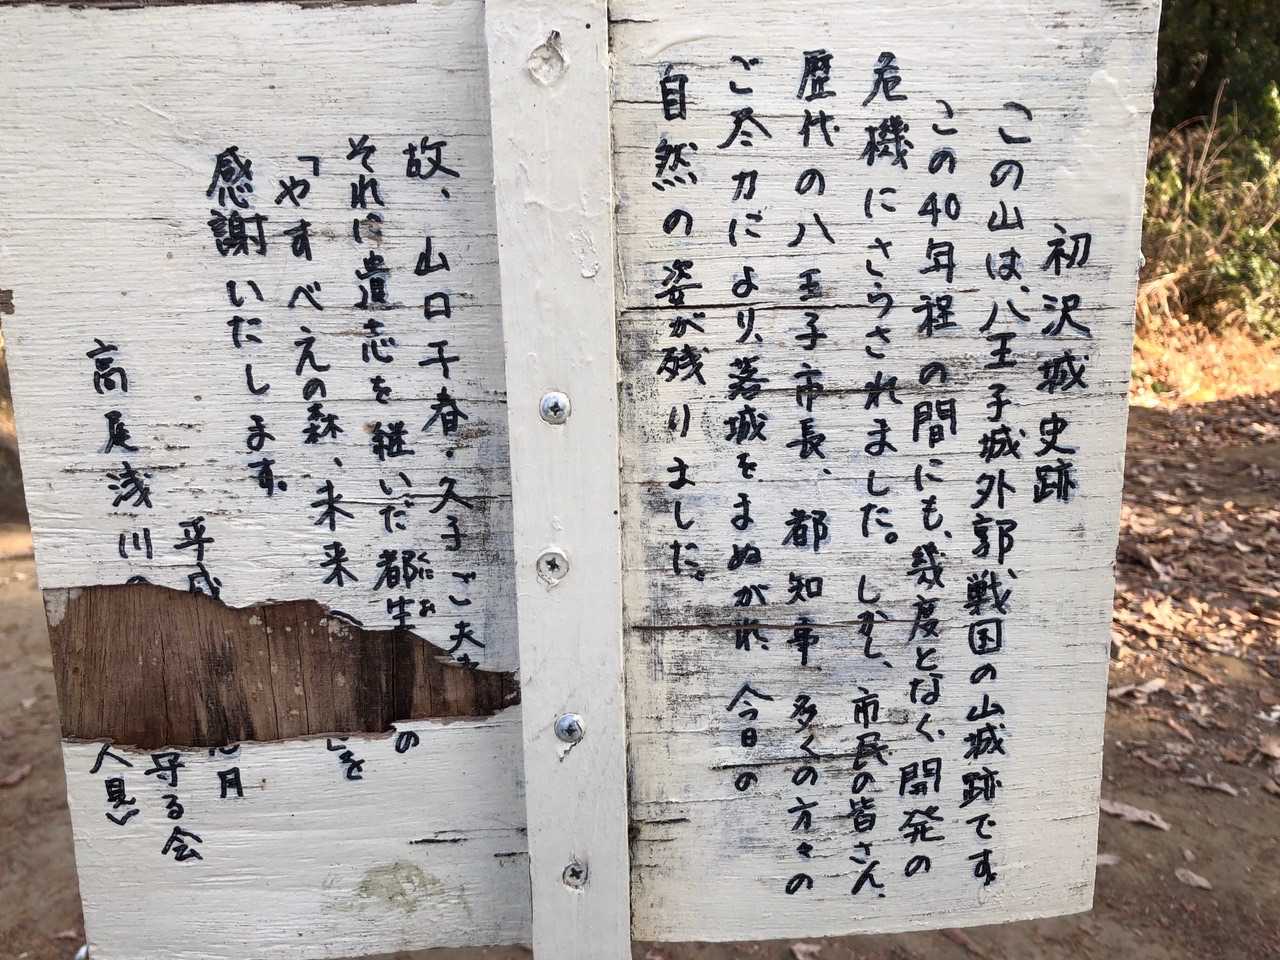 初沢城史跡
この山は、八王子城外郭、戦国の山城跡です。
この40年程の間にも、幾度となく、開発の
危機にさらされました。しかし、市民の皆さん、
歴代の八王子市長、都知事 多くの方々の
ご尽力により、落城をまぬがれ、今日の
自然の姿が残りました。
故、山口千春・久子ご夫
それに遺志を継いだ都生 くにお の
「やすべえの森、未来 を
感謝いたします。
平成 月
高尾浅川の 守る会
人見